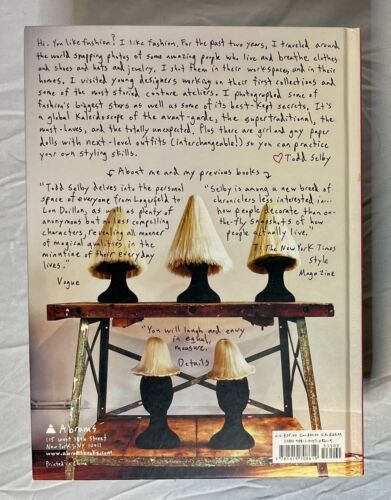 Hi. You like fashion? I like fashion. For the past two years, I traveled around
the world snapping photos of some amazing people who live and breathe clothes
and shoes and hats and jewelry. I shot them in their workspaces, and in their
homes. I visited young designers working on their first collections and
some of the most storied couture ateliers. I photographed some of
fashion's biggest stars as well as some of its best-kept secrets. It's
a global kaleidoscope of the avant-garde, the supertraditional, the
must-haves, and the totally unexpected. Plus there are girl and guy paper
dolls with next-level outfits (interchangeable!) so you can practice
your own styling skills.
Todd Selby
About me and my previous books
"Todd Selby delves into the personal
space of everyone from Lagerfeld to
Lou Doillon, as well as plenty of
anonymous but no less compelling
characters, revealing all manner
of magical qualities in the
minutiae of their everyday
lives."
Vogue
"Selby is among a new breed of
chroniclers less interested in...
how people decorate than on-
the-fly snapshots of how
people actually live."
T: The New York Times
Style
Magazine
"You will laugh and envy
in equal
measure.
Details
Abrams
115 West 18th Street
New York, NY
10011
www.abramsbooks.com
Printed in China